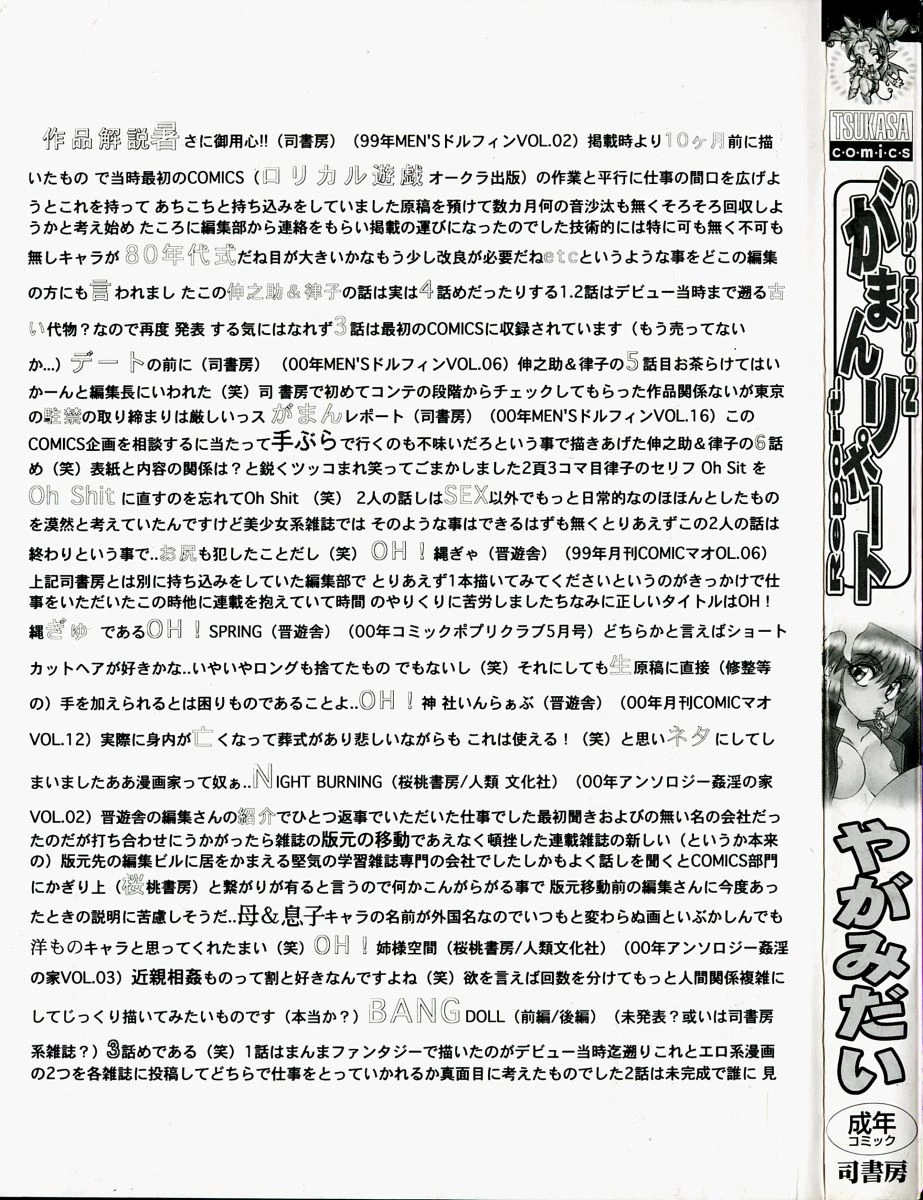 作品解説暑さに御用心!!（司書房）（99年MEN'SドルフィンVOL.02）掲載時より10ヶ月前に描
いたもの で当時最初のCOMICS（ロリカル遊戯 オークラ出版）の作業と平行に仕事の間口を広げよ
うとこれを持って あちこちと持ち込みをしていました原稿を預けて数カ月何の音沙汰も無くそろそろ回収しよ
うかと考え始め たころに編集部から連絡をもらい掲載の運びになったのでした技術的には特に可も無く不可も
無しキャラが 80年代式だね目が大きいかなもう少し改良が必要だねetcというような事をどこの編集
の方にも言われまし たこの伸之助＆律子の話は実は4話めだったりする1.2話はデビュー当時まで遡る古
い代物？なので再度 発表 する気にはなれず3話は最初のCOMICSに収録されています（もう売ってない
か...）デートの前に（司書房）（00年MEN'SドルフィンVOL.06）伸之助＆律子の5話目お茶らけてはい
かーんと編集長にいわれた（笑）司 書房で初めてコンテの段階からチェックしてもらった作品関係ないが東京
の駐禁の取り締まりは厳しいっス がまんレポート（司書房）（00年MEN'SドルフィンVOL.16）この
COMICS企画を相談するに当たって手ぶらで行くのも不味いだろという事で描きあげた伸之助＆律子の6話
め（笑）表紙と内容の関係は？と鋭くツッコまれ笑ってごまかしました2頁3コマ目律子のセリフ Oh Sit を
Oh Shit に直すのを忘れてOh Shit （笑） 2人の話しはSEX以外でもっと日常的なのほほんとしたもの
を漠然と考えていたんですけど美少女系雑誌では そのような事はできるはずも無くとりあえずこの2人の話は
終わりという事で..お尻も犯したことだし（笑） OH！縄ぎゃ（晋遊舎）（99年月刊COMICマオOL.06）
上記司書房とは別に持ち込みをしていた編集部で とりあえず1本描いてみてくださいというのがきっかけで仕
事をいただいたこの時他に連載を抱えていて時間 のやりくりに苦労しましたちなみに正しいタイトルはOH！
縄ぎゅ であるOH！SPRING（晋遊舎）（00年コミックポプリクラブ5月号）どちらかと言えばショート
カットヘアが好きかな..いやいやロングも捨てたもの でもないし（笑）それにしても生原稿に直接（修整等
の）手を加えられるとは困りものであることよ..OH！神 社いんらぁぶ（晋遊舎）（00年月刊COMICマオ
VOL.12）実際に身内が亡くなって葬式があり悲しいながらも これは使える！（笑）と思いネタにしてし
まいましたああ漫画家って奴ぁ..NIGHT BURNING（桜桃書房/人類 文化社）（00年アンソロジー姦淫の家
VOL.02）晋遊舎の編集さんの紹介でひとつ返事でいただいた仕事でした最初聞きおよびの無い名の会社だっ
たのだが打ち合わせにうかがったら雑誌の版元の移動であえなく頓挫した連載雑誌の新しい（というか本来
の）版元先の編集ビルに居をかまえる堅気の学習雑誌専門の会社でしたしかもよく話しを聞くとCOMICS部門
にかぎり上（桜桃書房）と繋がりが有ると言うので何かこんがらがる事で 版元移動前の編集さんに今度あっ
たときの説明に苦慮しそうだ..母＆息子キャラの名前が外国名なのでいつもと変わらぬ画といぶかしんでも
洋ものキャラと思ってくれたまい（笑）OH！姉様空間（桜桃書房/人類文化社）（00年アンソロジー姦淫
の家VOL.03）近親相姦ものって割と好きなんですよね（笑）欲を言えば回数を分けてもっと人間関係複雑に
してじっくり描いてみたいものです（本当か？）BANG DOLL（前編/後編）（未発表？或いは司書房
系雑誌？）3話めである（笑）1話はまんまファンタジーで描いたのがデビュー当時迄遡りこれとエロ系漫画
の2つを各雑誌に投稿してどちらで仕事をとっていかれるか真面目に考えたものでした2話は未完成で誰に 見
TSUKASA
c・o・m・i・c・s
がまんリポート
Report
やがみだい
成年
コミック
司書房